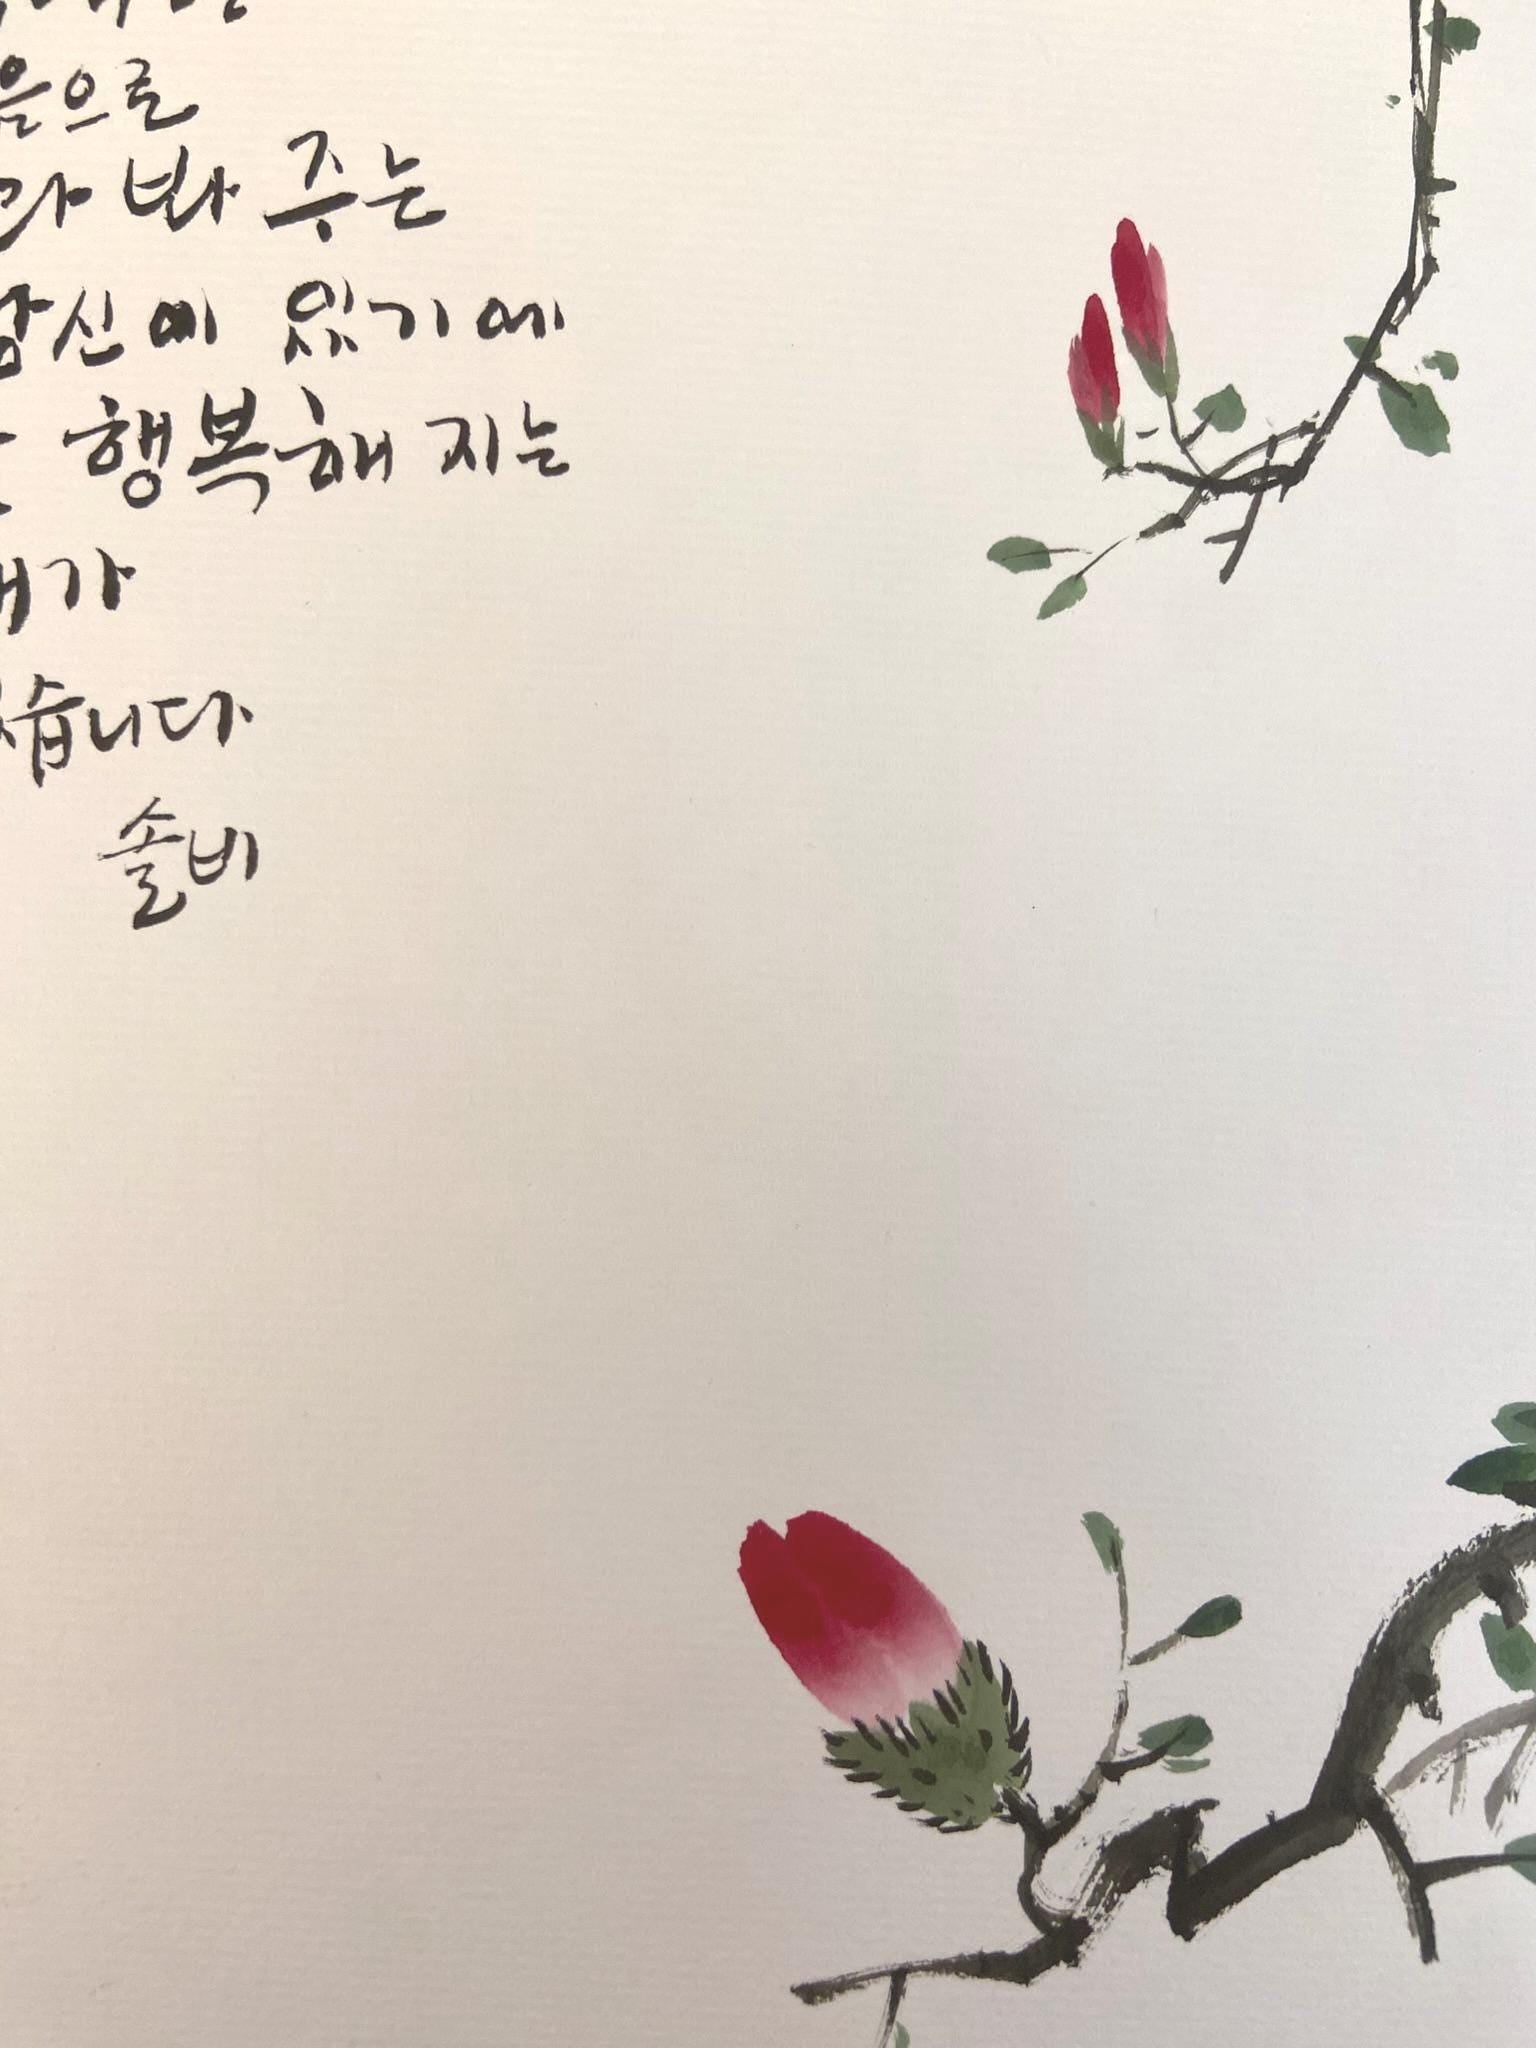 음으로
라봐 주는
당신이 있기에
행복해 지는
가
습니다
솔비